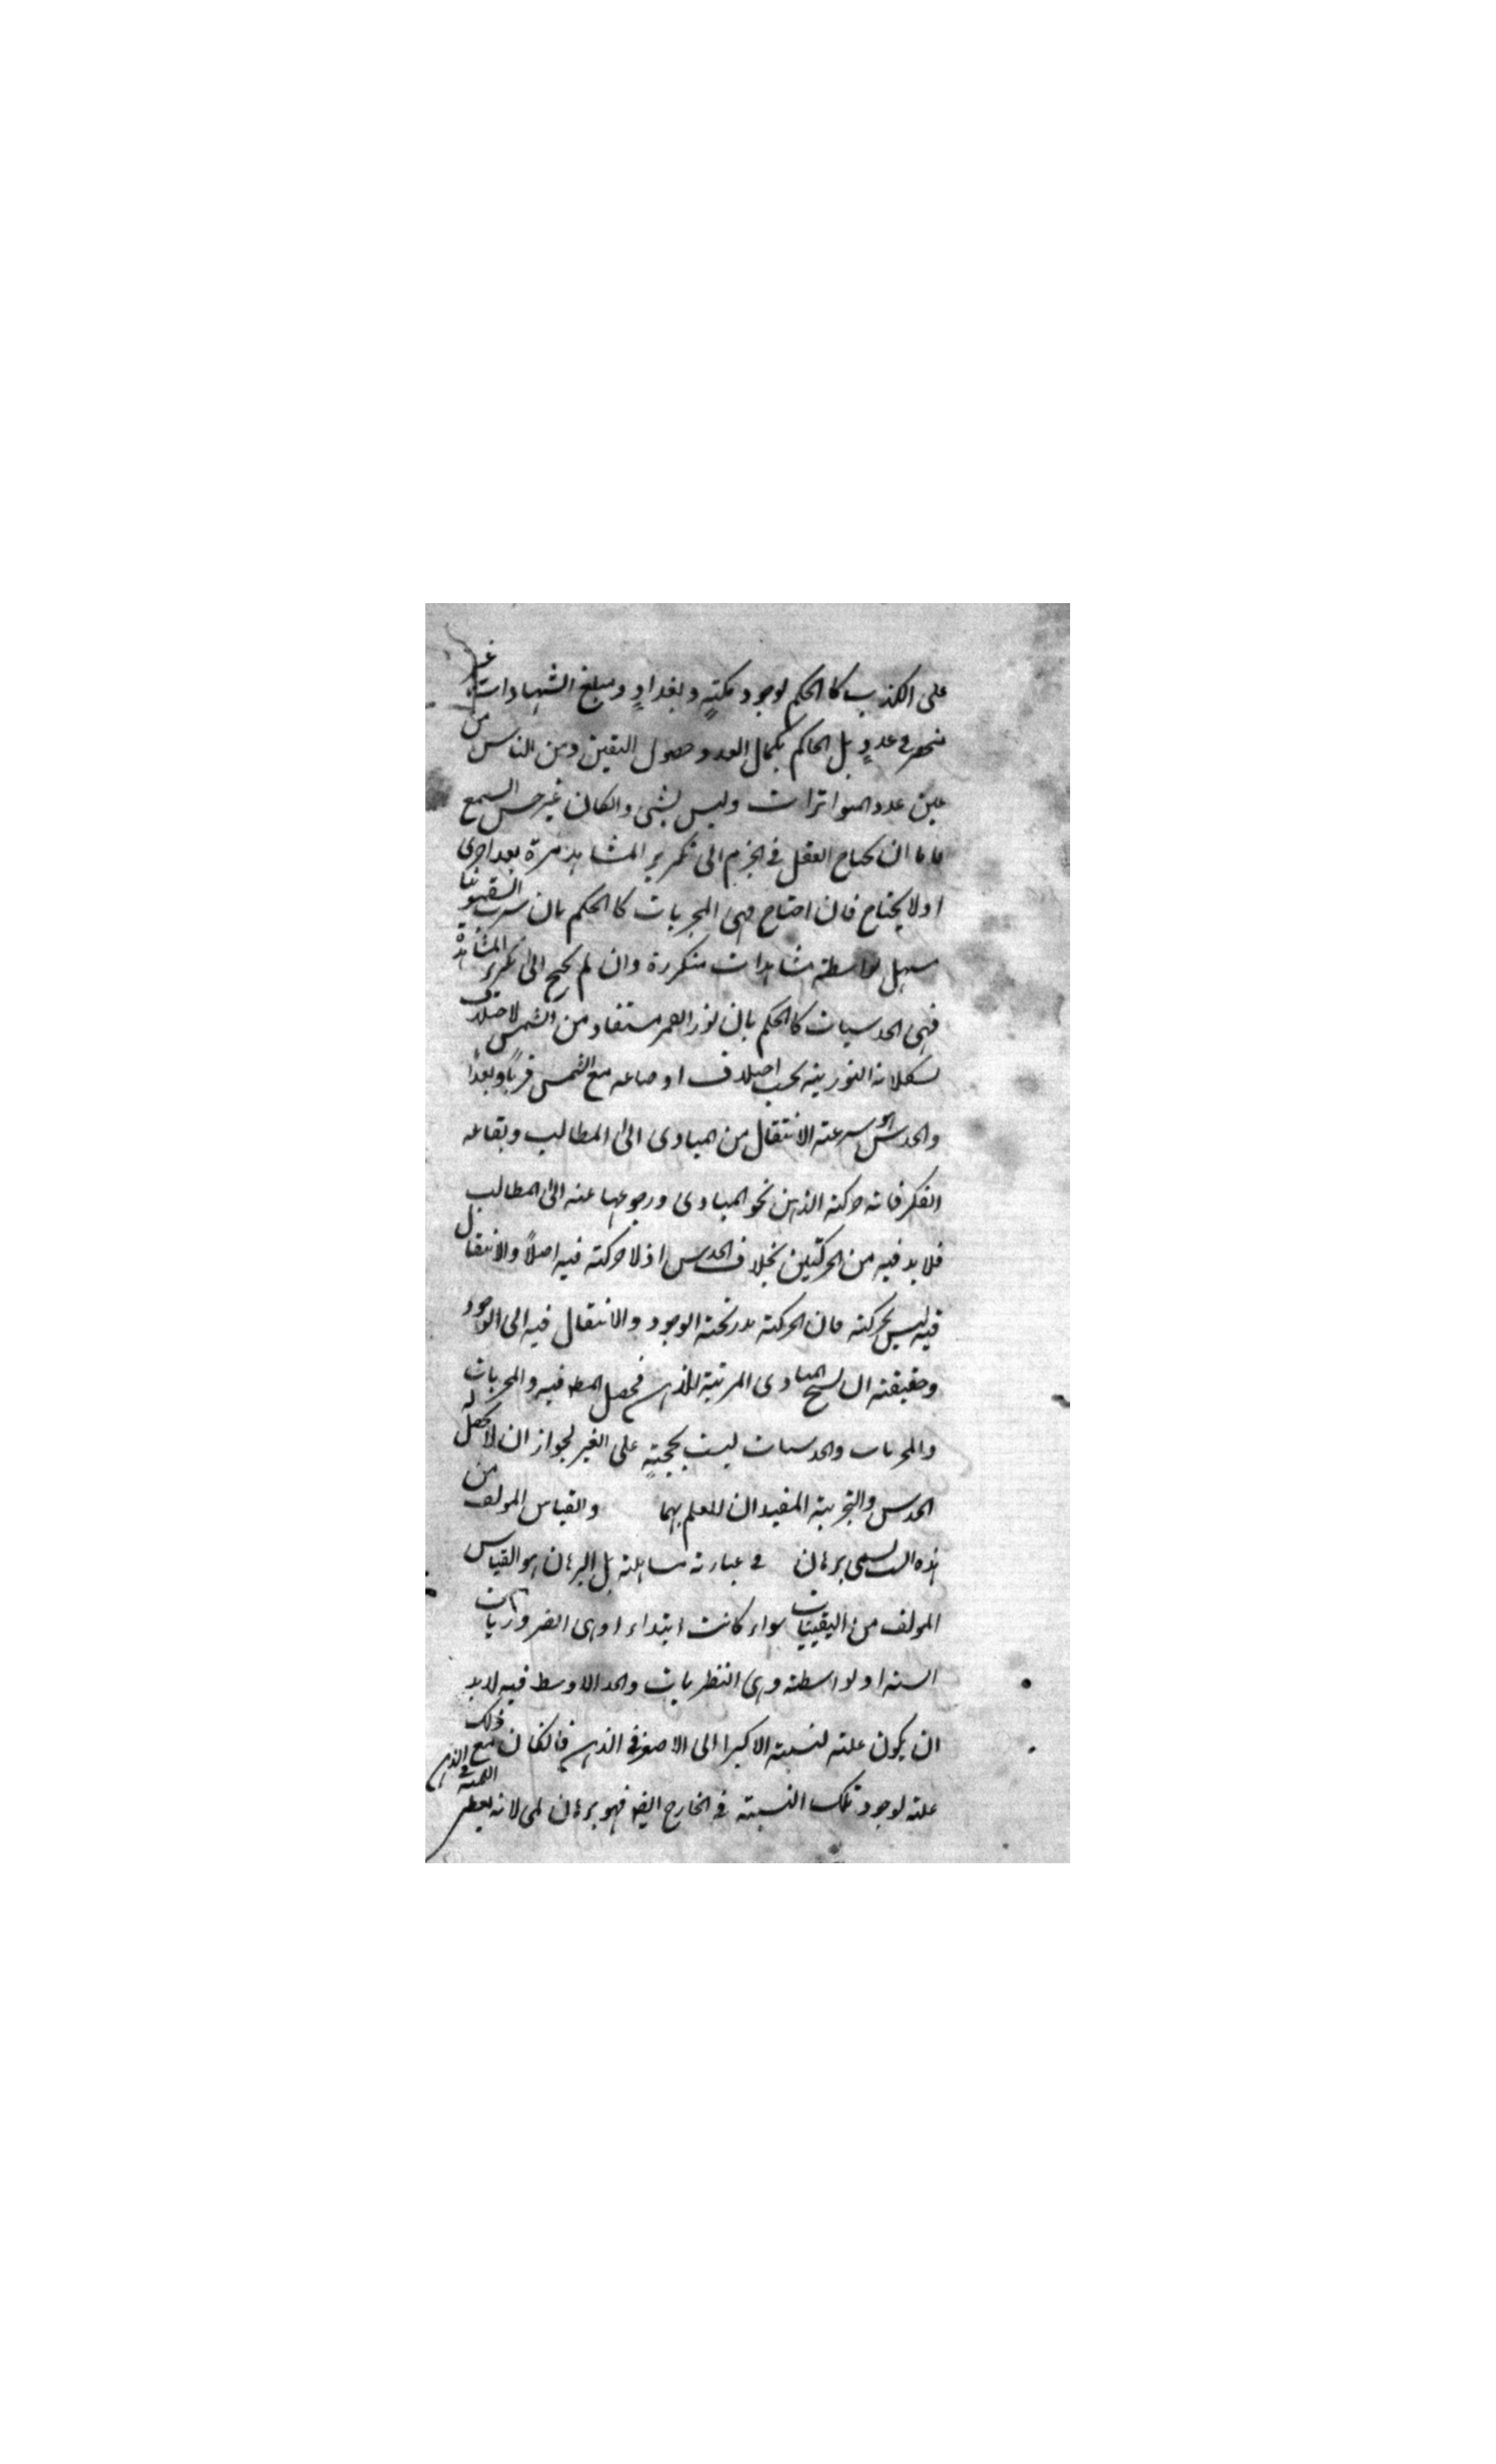 على الكذب كالحكم بوجود مكةٍ وبغدادٍ ومبلغ الشهادات غير
منحصر فى عددٍ بل الحاكم بكمال العدد حصول اليقين ومن الناس من
عين عدد المتواترات وليس بشئ وان كان غير حس السمع
فاما ان يحتاج العقل فى الجزم الى تكرير المشاهدة مرة بعد اخرى
او لا يحتاج فان احتاج فهى المجربات كالحكم بان شرب السقمونيا
مسهل بواسطة مشاهدات متكررة وان لم يحتج الى تكرير المشاهدة
فهى الحدسيات كالحكم بان نور القمر مستفاد من الشمس لاختلاف
تشكلاته النورية بحسب اختلاف اوضاعه مع الشمس قربًا وبعدًا
والحدس هو سرعة الانتقال من المبادى الى المطالب ويقابله
الفكر فانه حركة الذهن نحو المبادى ورجوعها عنه الى المطالب
فلا بد فيه من الحركتين بخلاف الحدس اذ لا حركة فيه اصلًا والانتقال
فيه ليس بحركة فان الحركة تدريجية الوجود والانتقال فيه الى الوجود
وحقيقته ان تسنح المبادى المرتبة للذهن فيحصل المط فيه والمجربات
والمجربات والحدسيات ليست بحجةٍ على الغير لجواز ان لا يحصل له
الحدس والتجربة المفيدان للعلم بهما والقياس المولف من
هذه الست يسمى برهان فى عبارته مساهلة بل البرهان هو القياس
المولف من اليقينيات سواء كانت ابتداء وهى الضروريات
الستة او بواسطة وهى النظريات والحد الاوسط فيه لا بد
ان يكون علة لنسبة الاكبر الى الاصغر فى الذهن فان كان مع ذلك
علة لوجود تلك النسبة فى الخارج ايضا فهو برهان لمى لانه يعطى اللمية فى الذهن